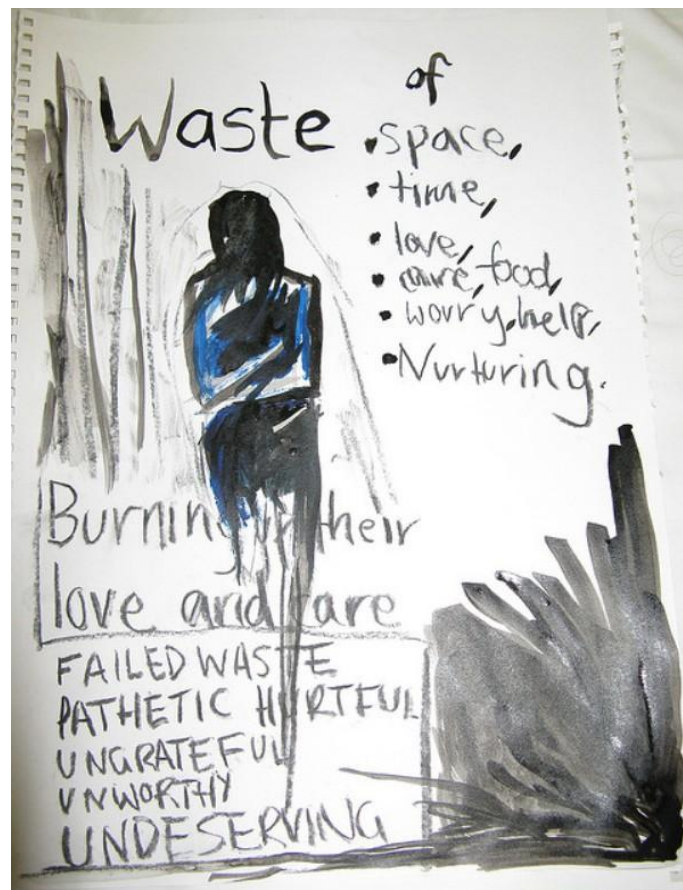 Waste of
• space,
• time,
• love,
• care, food,
• worry, help,
• Nurturing.
Burning up their
love and care
FAILED WASTE
PATHETIC HURTFUL
UNGRATEFUL
UNWORTHY
UNDESERVING